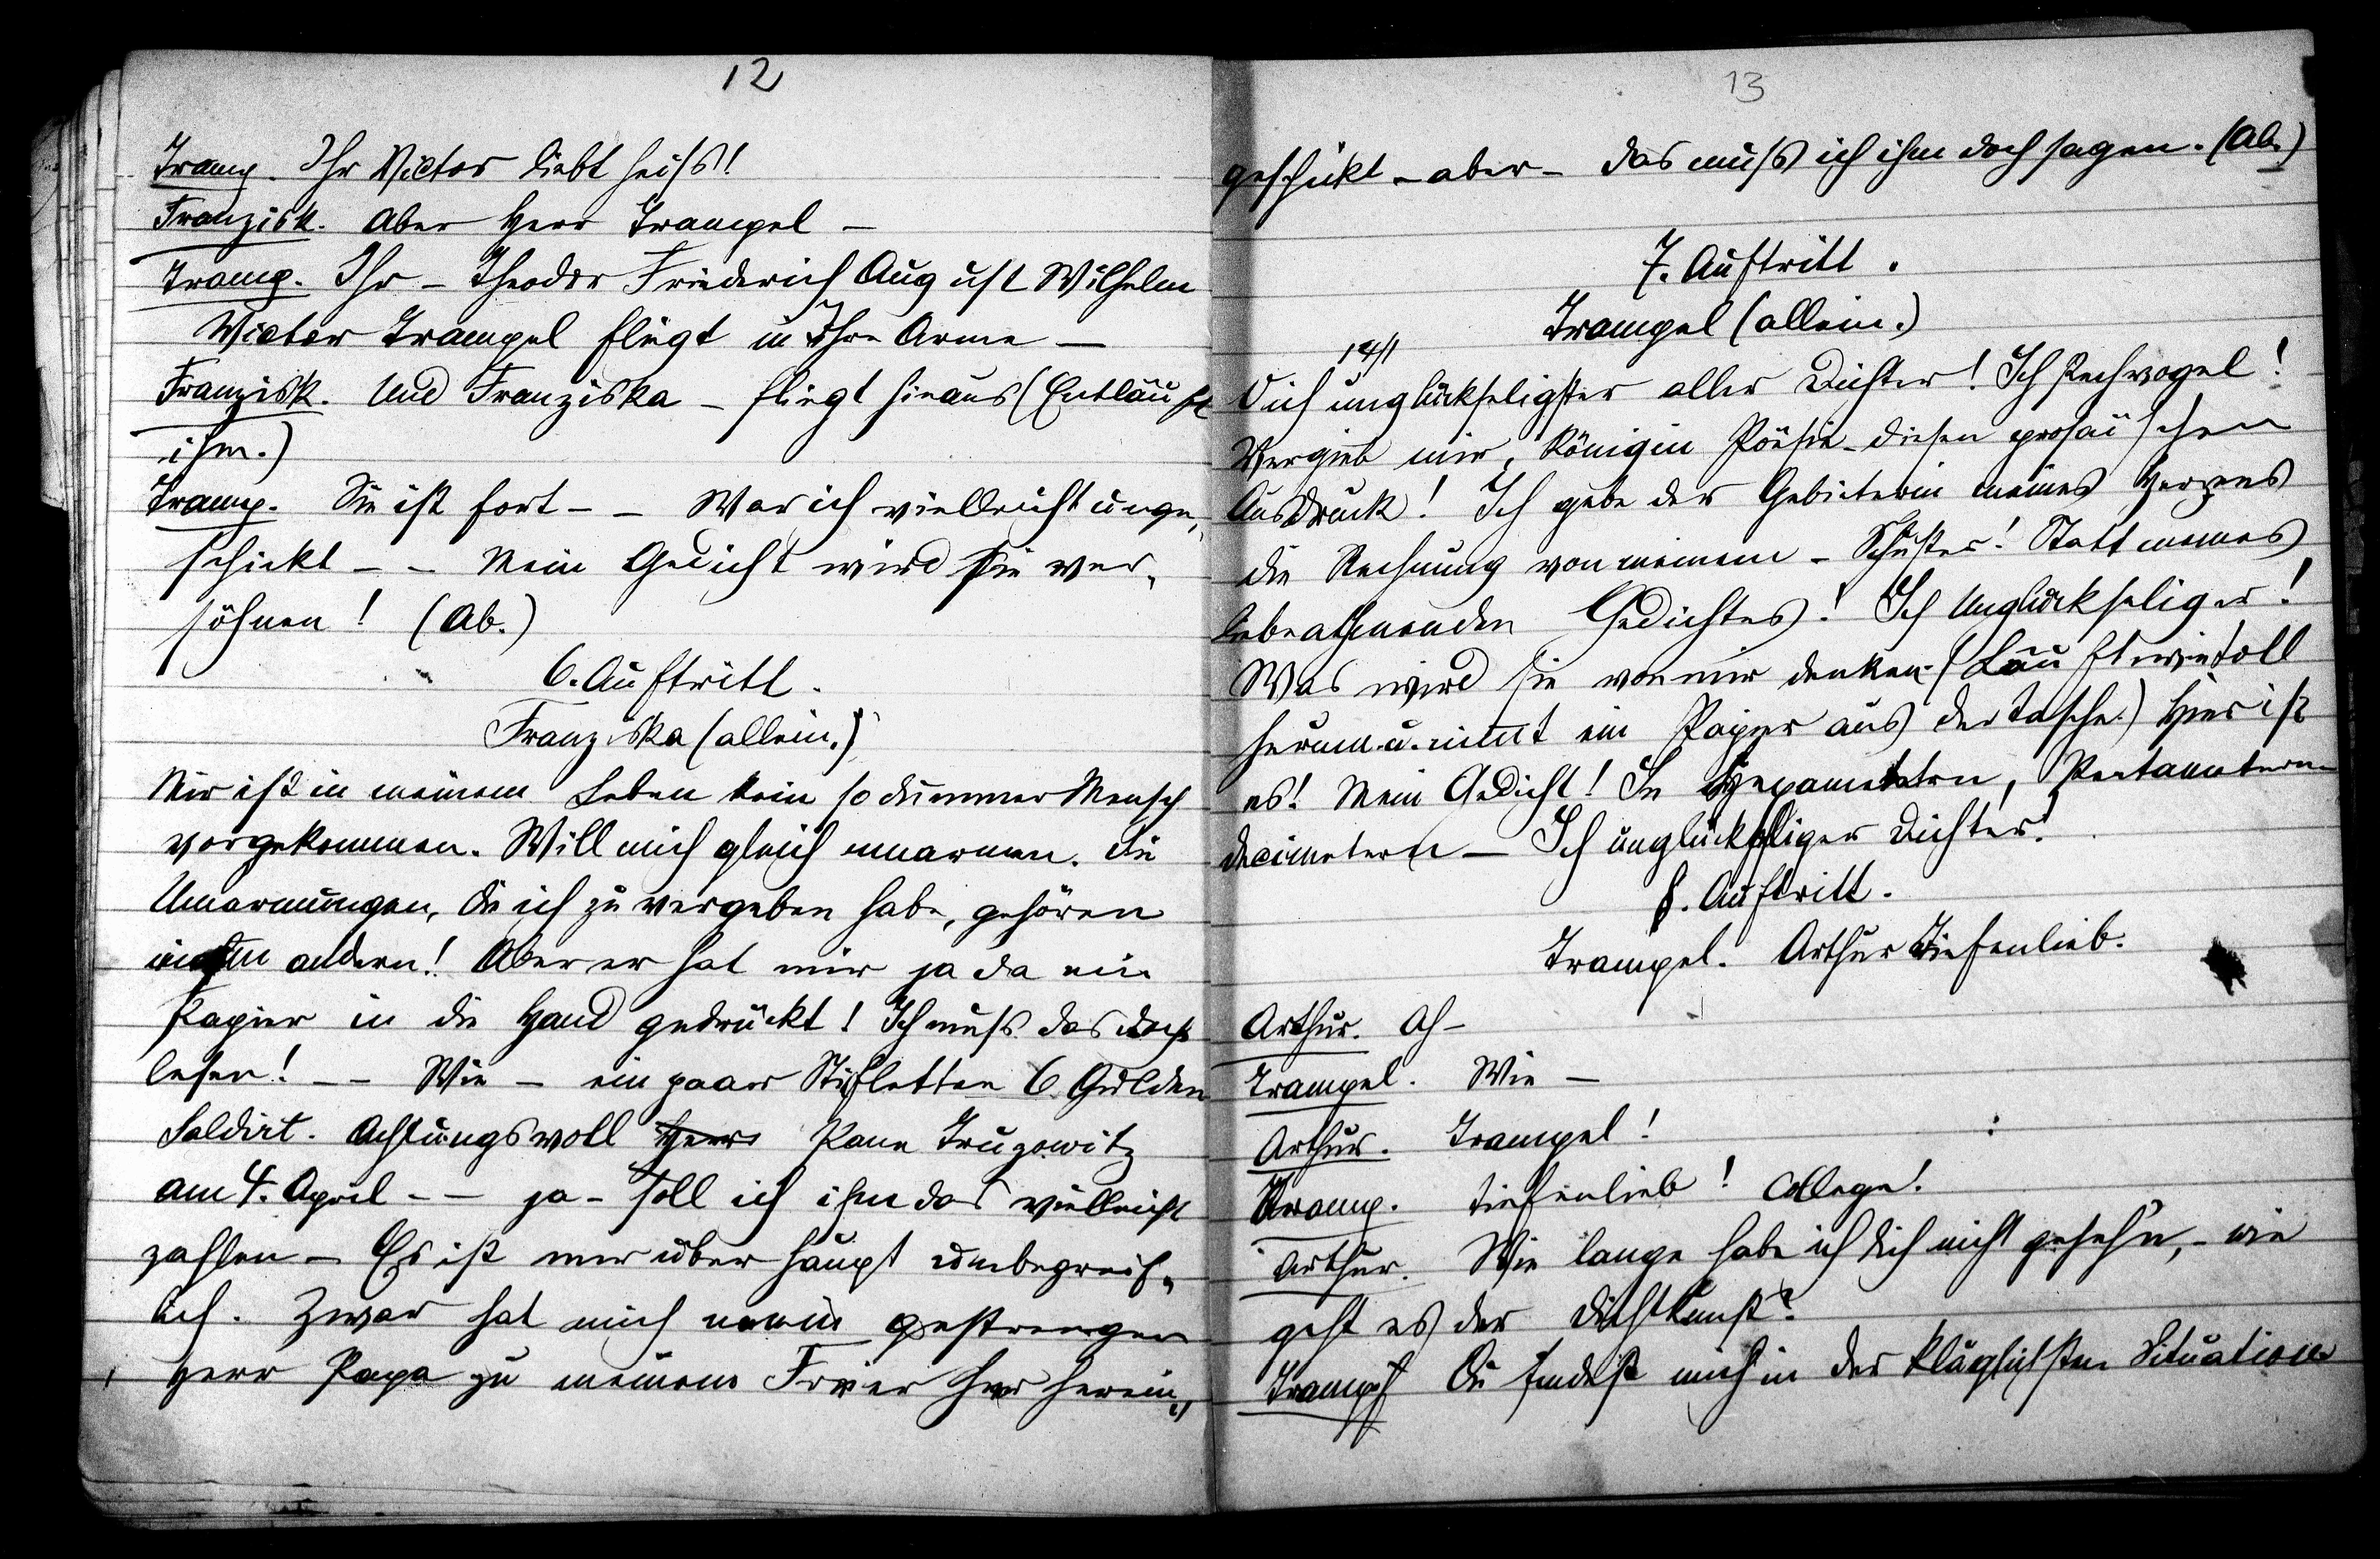 12
Tramp. Ihr Victor liebt heiss!
Franzisk. Aber Herr Trampel –
Tramp. Ihr – Theodor Friederich August Wilhelm
Victor Trampel fliegt in Ihre Arme –
Franzisk. Und Franziska – fliegt hinaus (Entläuft
ihm.)
Tramp. Sie ist fort – – War ich vielleicht unge„
schickt – – Mein Gedicht wird sie ver„
söhnen! (Ab.)
6. Auftritt.
Franziska (allein.)
Mir ist in meinem Leben kein so dummer Mensch
vorgekommen. Will mich gleich umarmen. Die
Umarmungen, die ich zu vergeben habe, gehören
andern! Aber er hat mir ja da ein
Papier in die Hand gedrückt! Ich muß das doch
lesen! – – Wie – ein paar Stifletten 6 Gulden
Saldirt. Achtungsvoll Herr
am 4. April – – ja – soll ich ihm das vielleicht
zahlen – Es ist mir überhaupt unbegreif„
lich. Zwar hat mich mein gestrenger
Herr Papa zu meinem Freier herein„
13
geschickt – aber – das muß ich ihm doch sagen. (Ab.)
7. Auftritt.
Trampel (allein.)
Ich unglückseligster aller Dichter! Ich Pechvogel!
Vergieb mir, Königin Poësie – diesen prosaïschen
Ausdruck! Ich gebe der Gebieterin meines Herzens
die Rechnung von meinem – Schuster! Statt meines
liebeathmenden Gedichtes! Ich Unglückseliger!
Was wird sie von mir denken. (Läuft wie toll
herum u. nimt ein Papier aus der Tasche.) Hier ist
es! Mein Gedicht! In Hexametern, Pentametern
Decimetern – Ich unglückseliger Dichter!
8. Auftritt.
Trampel. Arthur Tiefenlieb.
Arthur. Ah –
Trampel. Wie –
Arthur. Trampel!
Tramp. Tiefenlieb! College!
Arthur. Wie lange habe ich dich nicht geseh'n, – wie
geht es der Dichtkunst?
Tramp. Du findest mich in der kläglichsten Situation